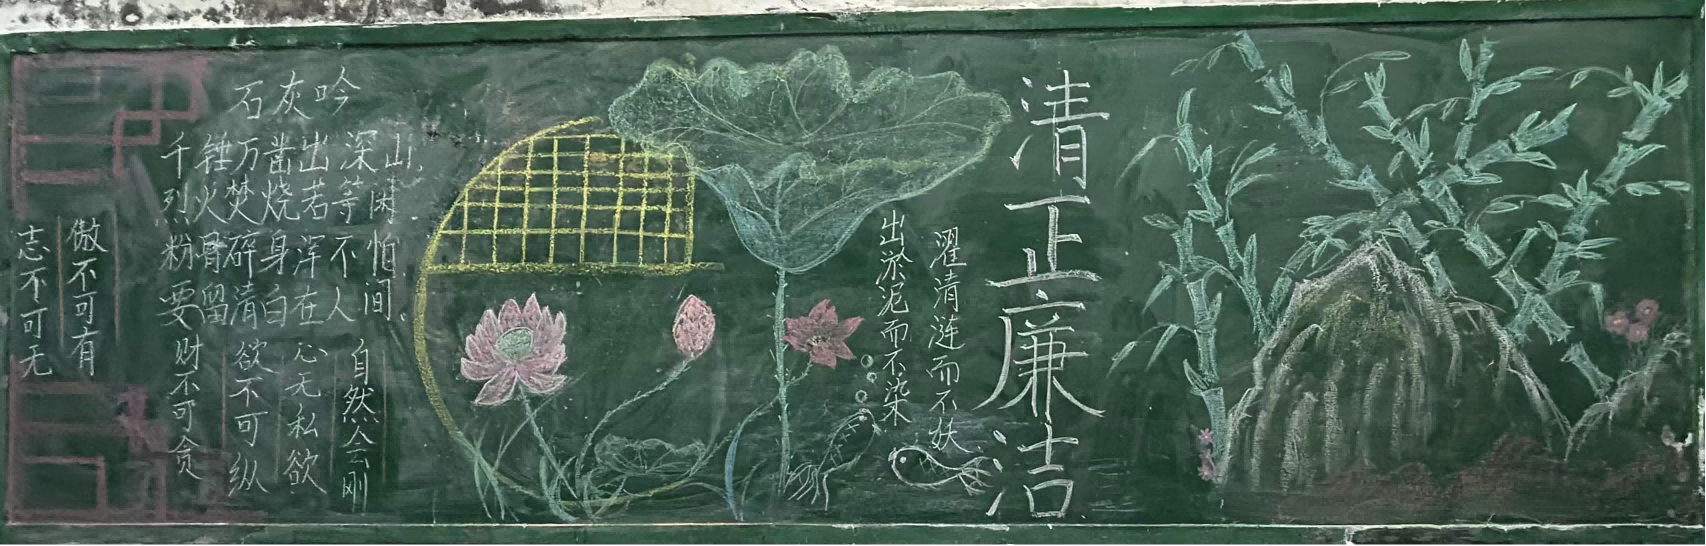 石灰吟
千锤万凿出深山,
烈火焚烧若等闲.
粉骨碎身浑不怕
要留清白在人间.
志不可无
傲不可有
财不可贪
欲不可纵
心无私欲
自然会刚
出淤泥而不染
濯清涟而不妖
清正廉洁